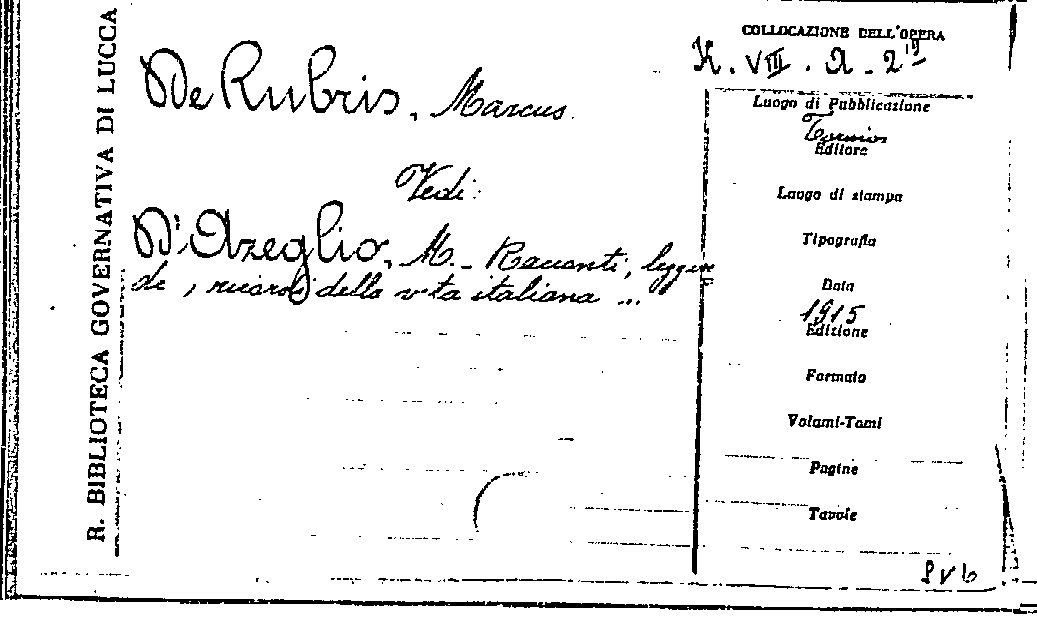 R. BIBLIOTECA GOVERNATIVA DI LUCCA
De Rubris, Marcus.
Vedi:
D'Azeglio, M. - Racconti, leggen
de, ricordi della vita italiana ...
COLLOCAZIONE DELL'OPERA
K. VIII. A. 2
Luogo di Pubblicazione
Torino
Editore
Luogo di stampa
Tipografia
Data
1915
Edizione
Formato
Volumi-Tomi
Pagine
Tavole